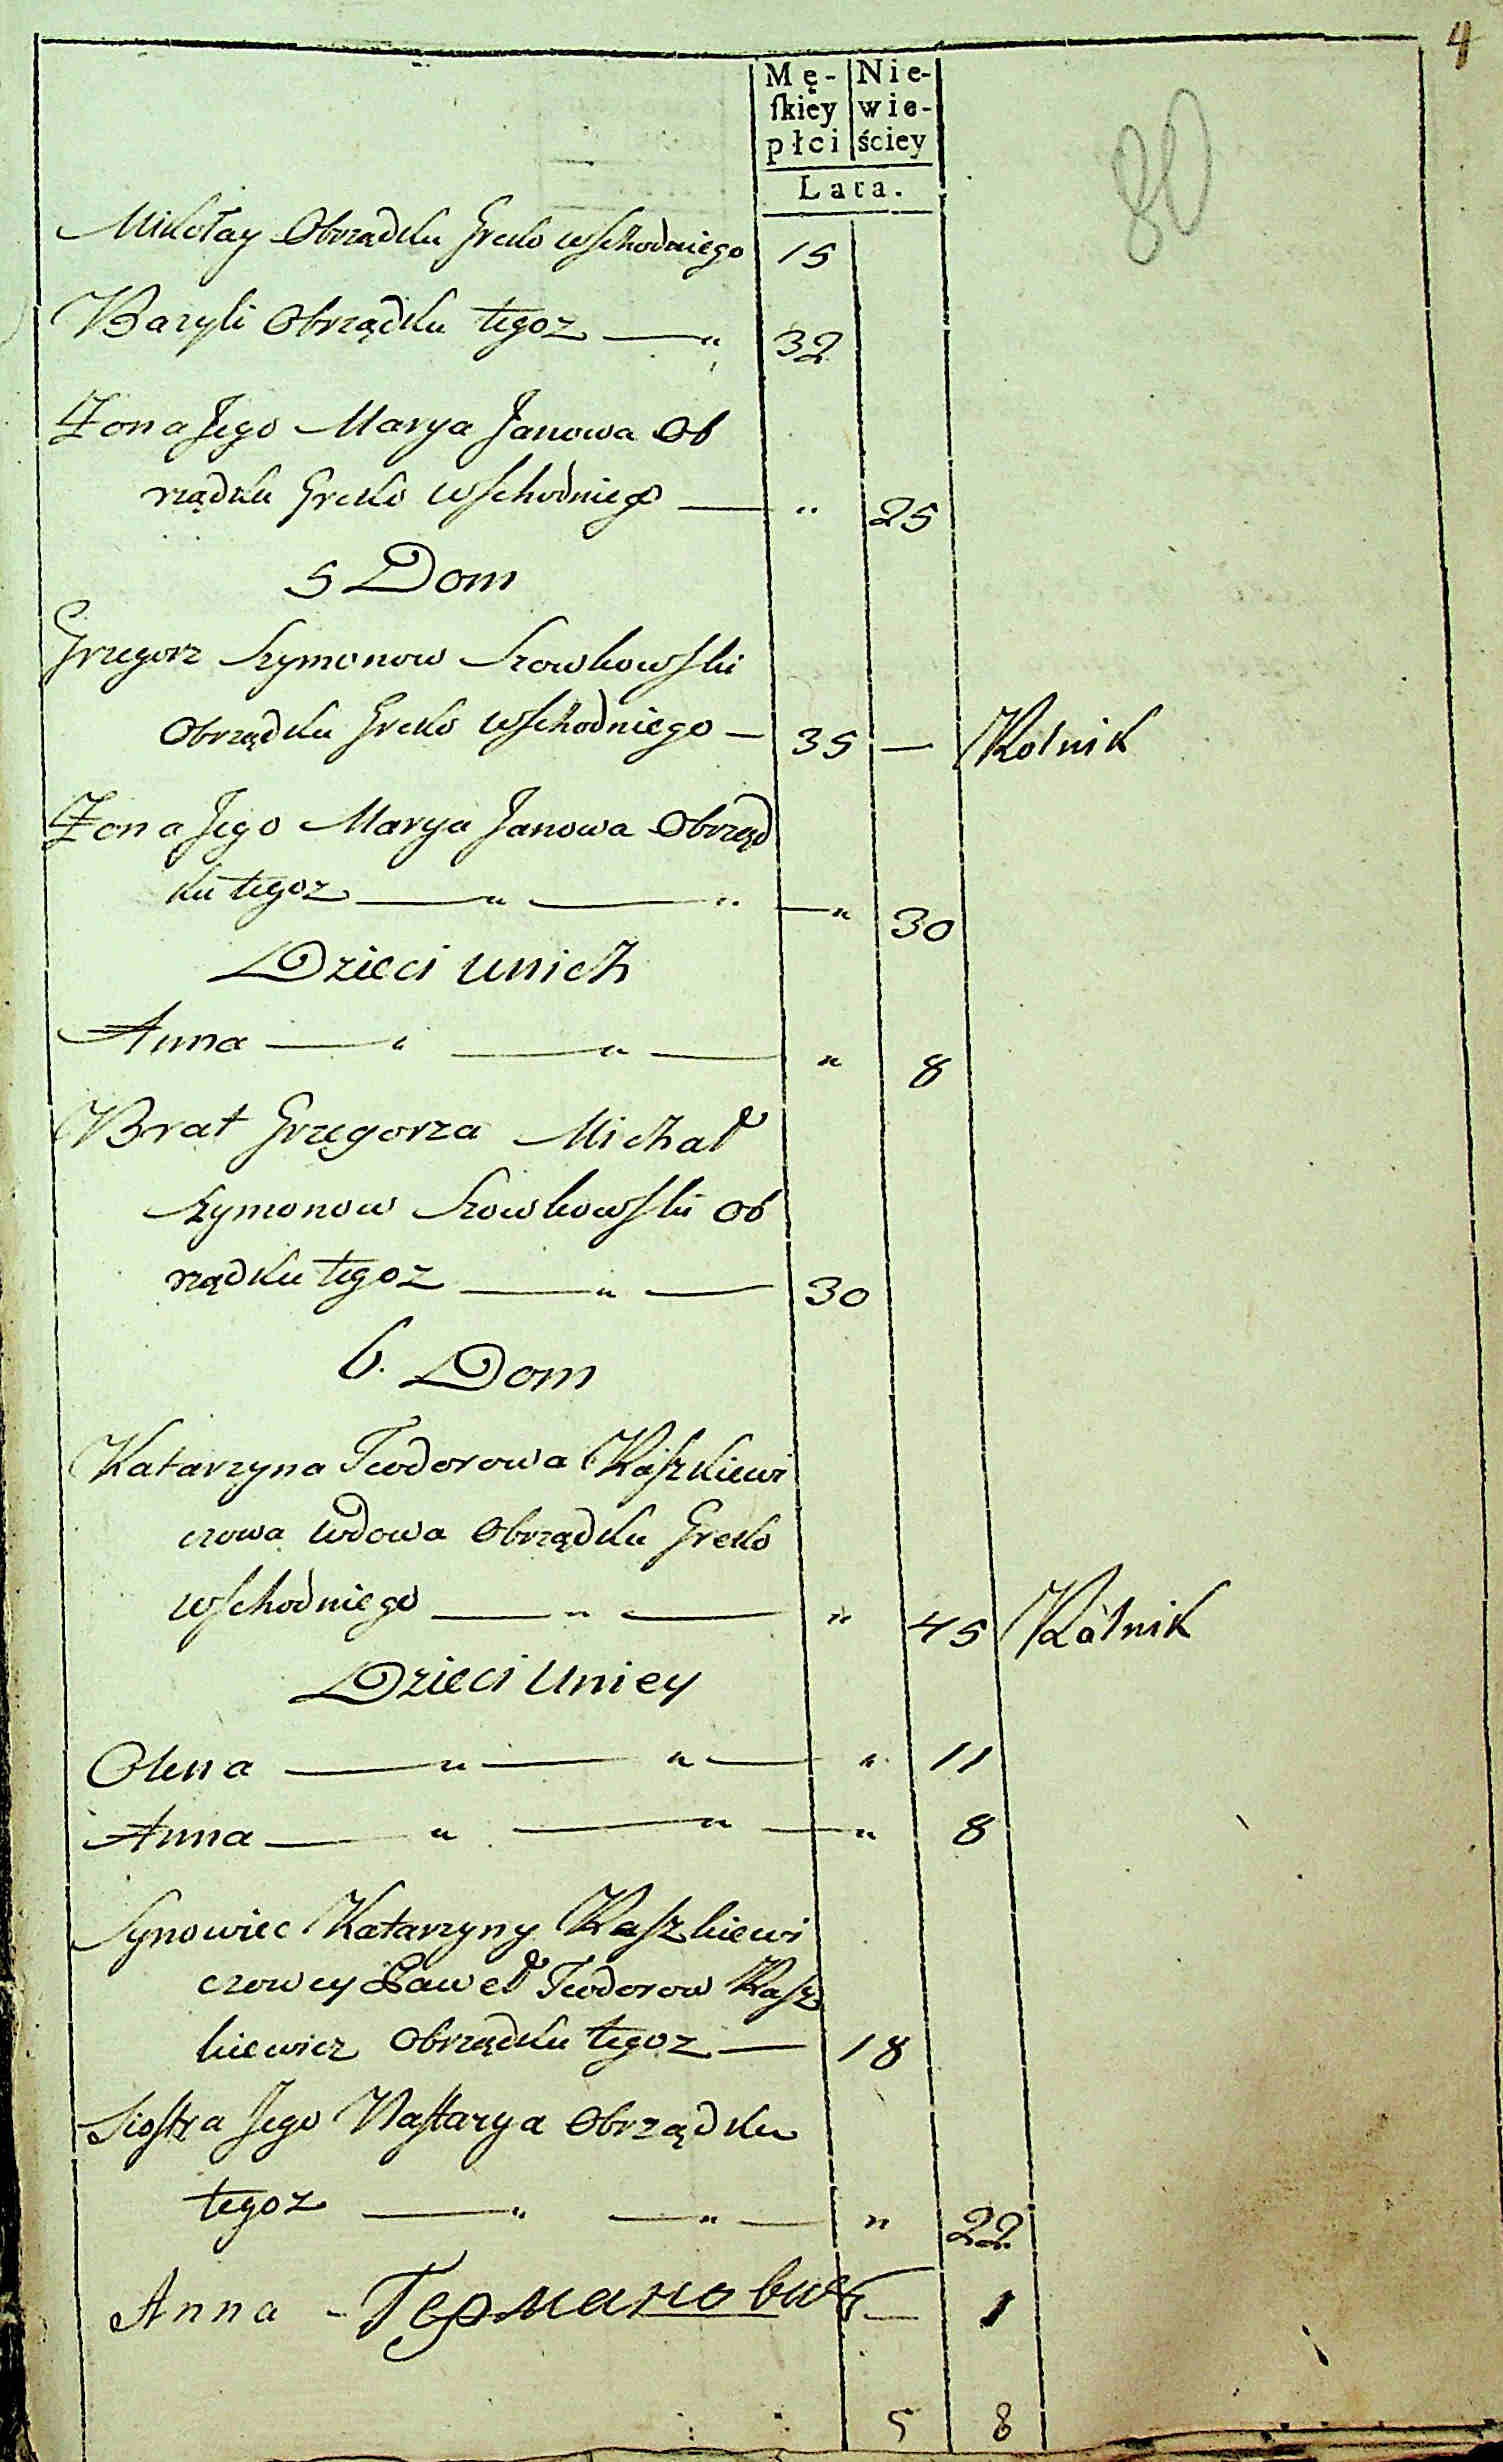 4
80
Mę- Nie-
ſkiey wie-
płci ściey
Lata.
Mikołay Obrządku Grecko wschodniego 15
Bazyli Obrządku tegoz — " 32
Zona Jego Marya Janowa Ob
rządku Grecko wschodniego — " 25
5 Dom
Grzegorz Szymonow Szowkowski
Obrządku Grecko wschodniego — 35 — Rolnik
Zona Jego Marya Janowa Obrząd
ku tegoz — " — " — " 30
Dzieci unich
Anna — " — " — " 8
Brat Grzegorza Michał
Szymonow Szowkowski Ob
rządku tegoz — " — 30
6. Dom
Katarzyna Teodorowa Raszkiewi
czowa wdowa Obrządku Grecko
wschodniego — " — " 45 Rolnik
Dzieci Uniey
Olena — " — " — " 11
Anna — " — " — " 8
Synowiec Katarzyny Raszkiewi
czowey Paweł Teodorow Rasz
kiewicz Obrządku tegoz — 18
Siostra Jego Nastazya Obrządku
tegoz — " — " — " 22
Anna - — 1
5 8